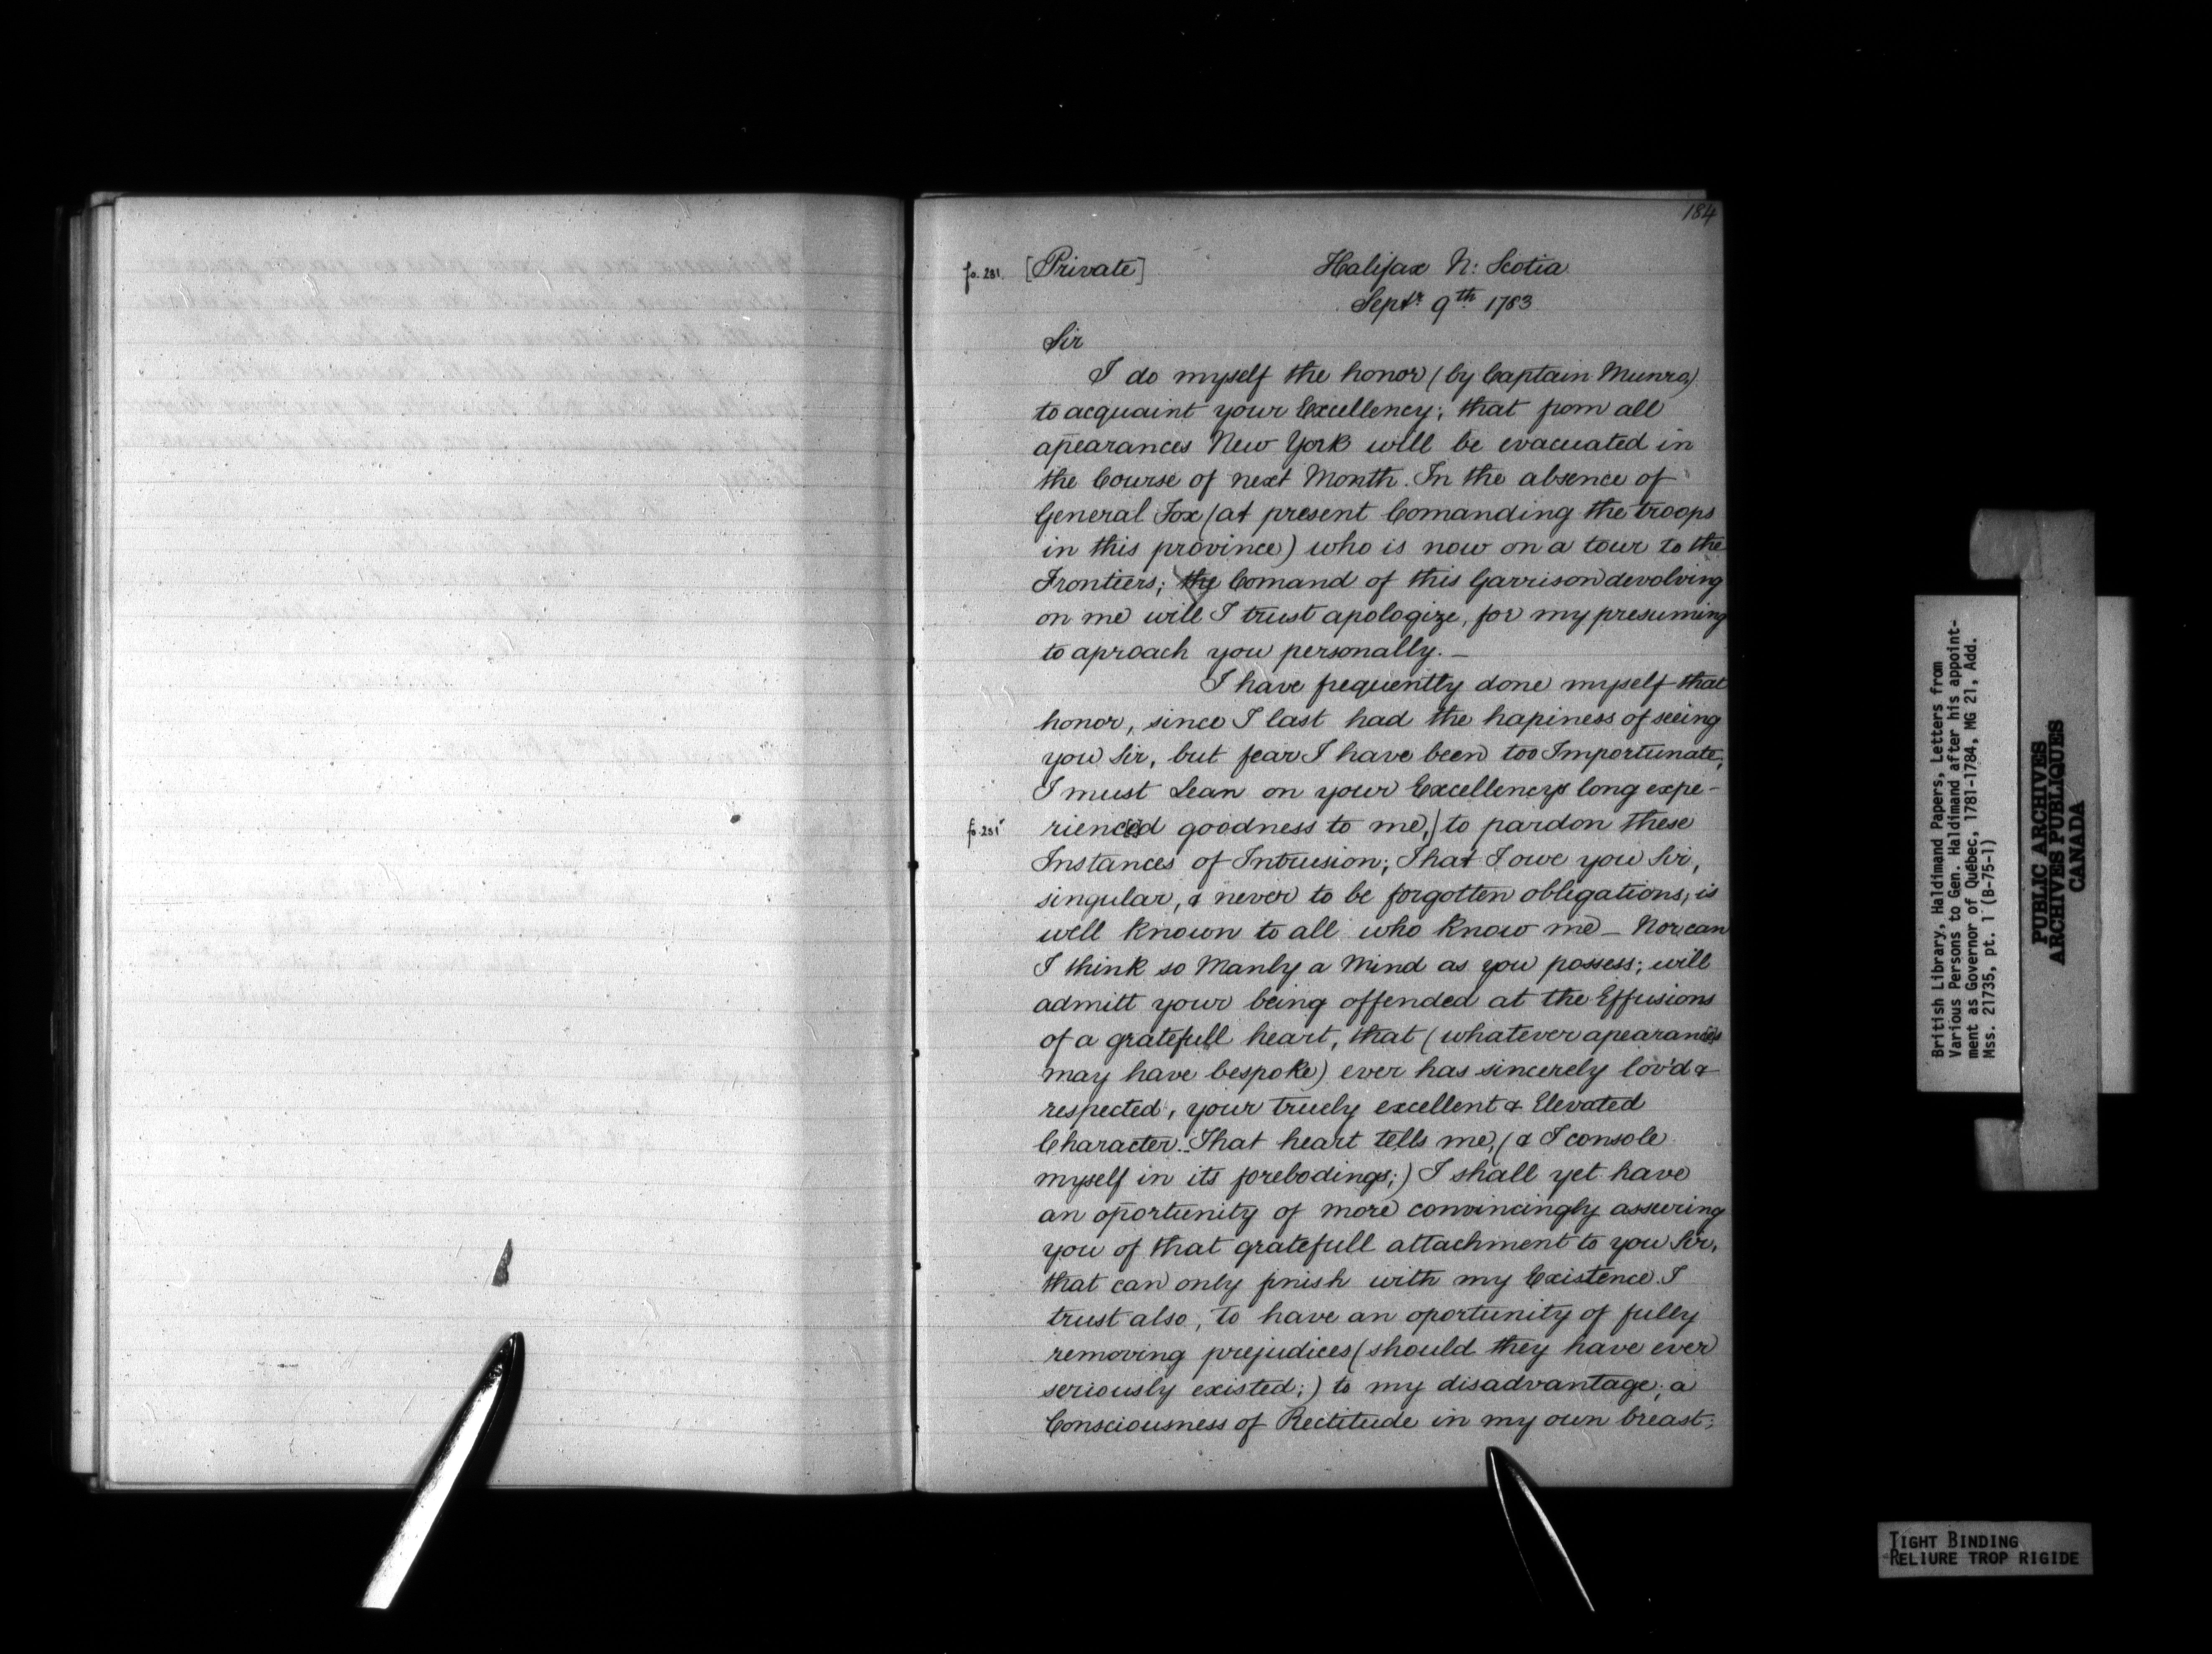 184
fo. 231. [Private] Halifax N: Scotia
Septr. 9th 1783
Sir
I do myself the honor (by Captain Munro)
to acquaint your Excellency; that from all
apearances New York will be evacuated in
the Course of next Month. In the absence of
General Fox (at present Comanding the troops
in this province) who is now on a tour to the
Frontiers; the Comand of this Garrison devolving
on me will I trust apologize, for my presuming
to aproach you personally. —
I have frequently done myself that
honor, since I last had the hapiness of seeing
you Sir, but fear I have been too Importunate;
I must Lean on your Excellencys long expe-
fo. 231v rienc[e]d goodness to me,/ to pardon these
Instances of Intrusion; That I owe you Sir,
singular, & never to be forgotten obligations, is
well known to all who know me — Nor can
I think so Manly a Mind as you possess; will
admitt your being offended at the Effusions
of a gratefull heart, that (whatever apearances
may have bespoke) ever has sincerely lov'd &
respected, your truely excellent & Elevated
Character. That heart tells me, (& I console
myself in its forebodings;) I shall yet have
an oportunity of more convincingly assuring
you of that gratefull attachment to you Sir,
that can only finish with my Existence. I
trust also, to have an oportunity of fully
removing prejudices (should they have ever
seriously existed;) to my disadvantage; a
Consciousness of Rectitude in my own breast;
British Library, Haldimand Papers, Letters from
Various Persons to Gen. Haldimand after his appoint-
ment as Governor of Québec, 1781-1784, MG 21, Add.
Mss. 21735, pt. 1 (B-75-1)
PUBLIC ARCHIVES
ARCHIVES PUBLIQUES
CANADA
TIGHT BINDING
RELIURE TROP RIGIDE